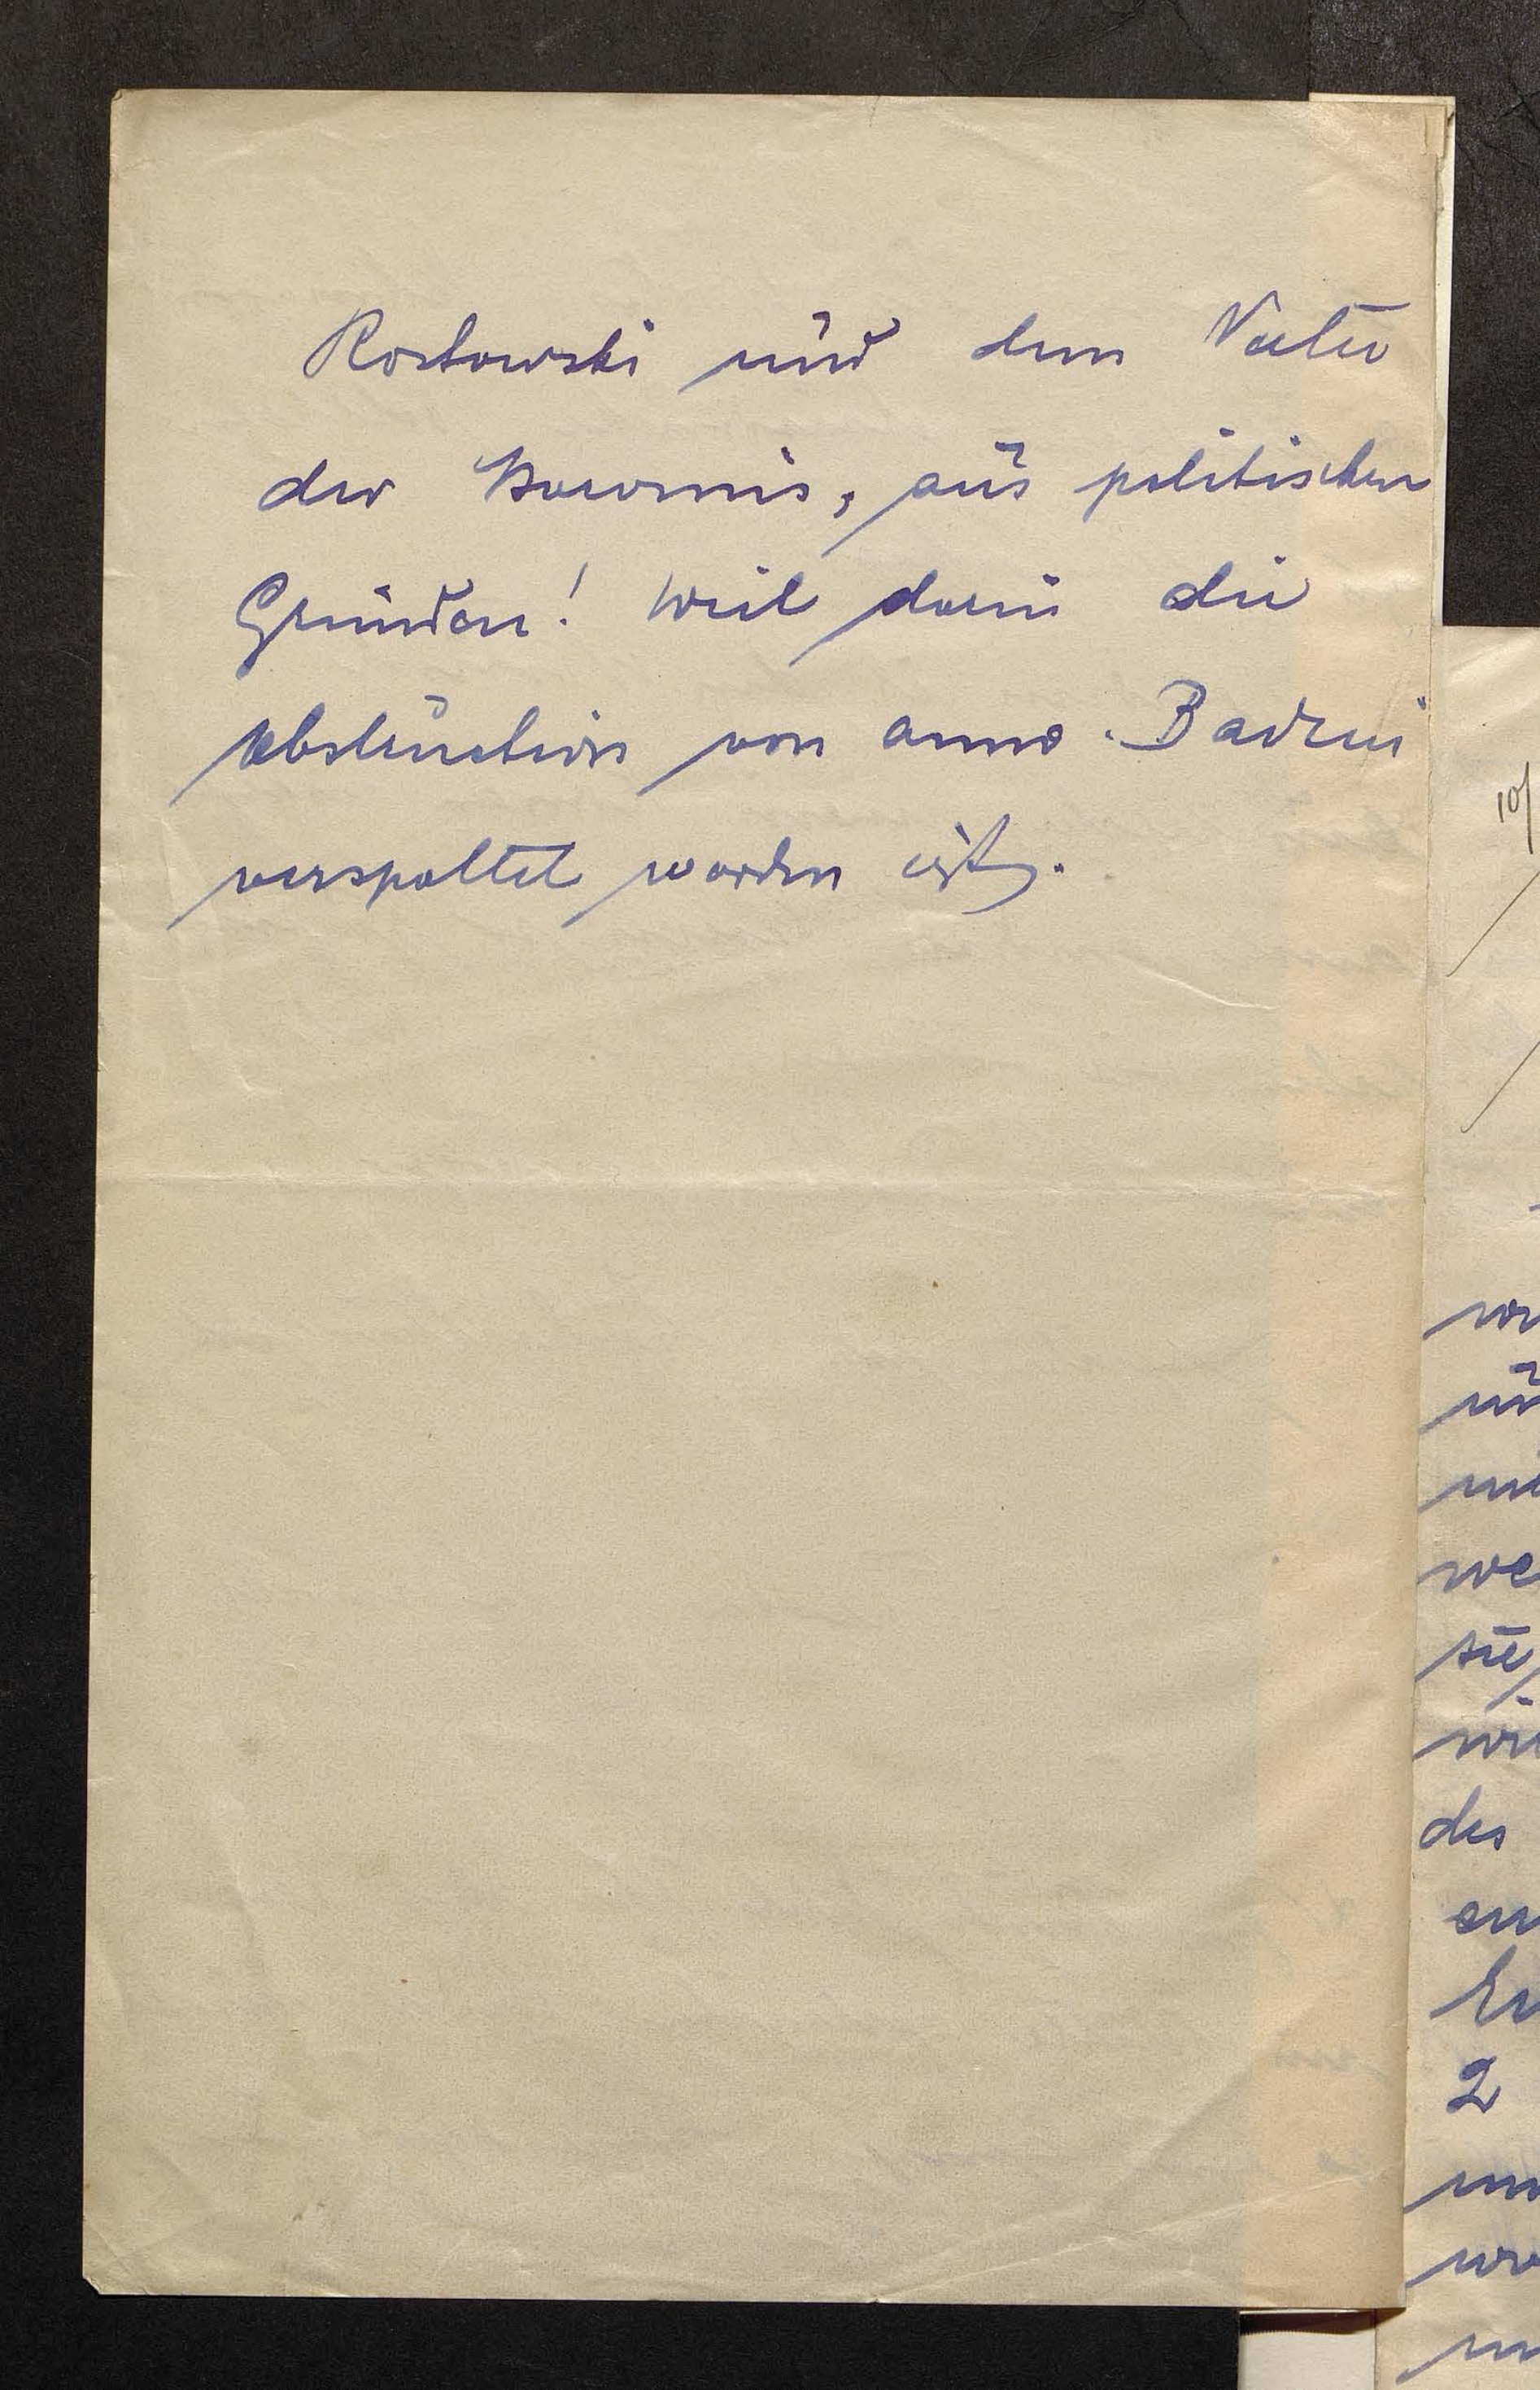 Rostowski und dem Vater
der Baronin, aus politischen
Gründen! Weil darin die
Obstruction von anno Badeni
verspottet worden ist.
10/
des
2